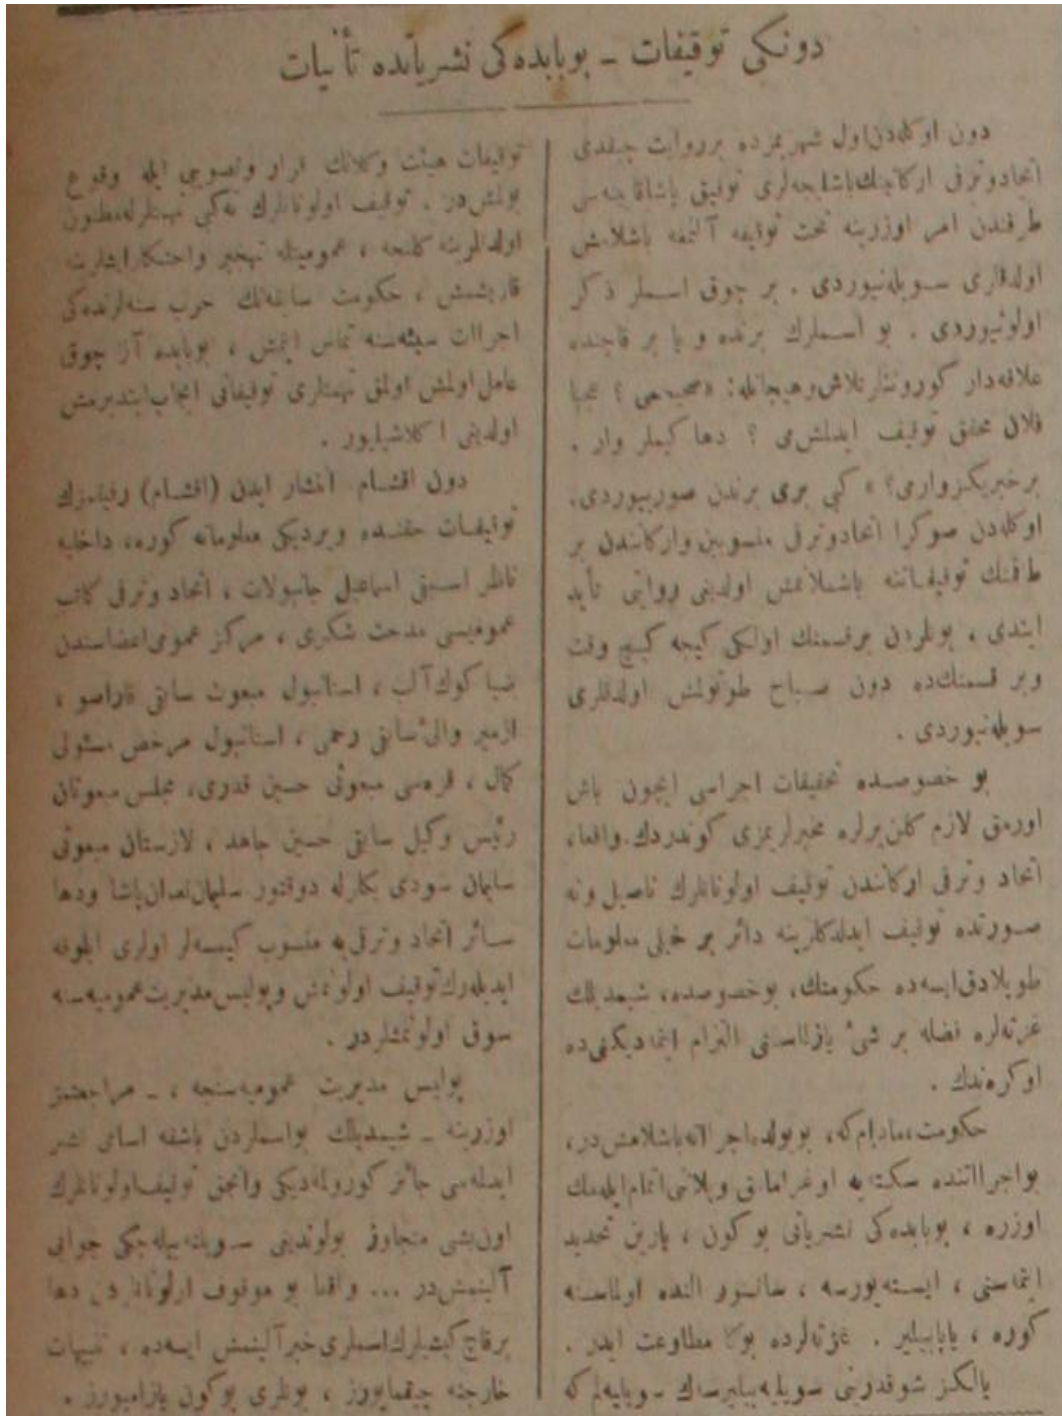 دونكی توقیفات ــ بوبابده‌كی نشریاتده تأنیات
دون اوكله‌دن اول شهریمزده بر روایت چیقدی
اتحاد و ترقی اركانینك باشلیجه‌لری توفیق پاشا قابینه‌سی
طرفندن امر اوزرینه تحت توقیفه آلنمغه باشلامش
اولدقلری سویله‌نیوردی . بر چوق اسملر ذكر
اولونیوردی . بو اسملرك برنده و یا بر قاچنده
علاقه‌دار كوروننلر تلاش و هیجانله: «صحیحمی ؟ عجبا
فلان محقق توقیف ایدلمش‌می ؟ دها كیملر وار .
بر خبریكز وارمی؟ » كبی بری برندن صورییوردی.
اوكله‌دن صوكرا اتحاد و ترقی منسوبین و اركانندن بر
طاقمنك توقیفاتنه باشلانمش اولدیغی روایتی تأید
ایتدی ، بونلردن بر قسمنك اولكی كیجه كیچ وقت
وبر قسمنك‌ده دون صباح طوتولمش اولدقلری
سویله‌نیوردی .
بو خصوصده تحقیقات اجراسی ایچون باش
اورمق لازم كلن یرلره مخبرلریمزی كوندردك. واقعا،
اتحاد و ترقی اركانندن توقیف اولونانلرك ناصیل و نه
صورتده توقیف ایدلدكلرینه دائر بر خیلی معلومات
طوپلادق ایسه‌ده حكومتك، بو خصوصده، شیمدیلك
غزته‌لره فضله بر شیٔ یازلماسنی التزام ایتمادیكنی‌ده
اوكرندك .
حكومت، مادام‌كه، بو یولده اجرااته باشلامش‌در،
بو اجرااتنده سكته‌یه اوغراماق و پلانی اتمام ایله‌مك
اوزره ، بوبابده‌كی نشریاتی بو كون ، یارین تحدید
ایتماسنی ، ایسته‌یورسه ، سانسور النده اولماسنه
كوره ، یاپابیلیر . غزته‌لرده بوكا مطاوعت ایدر .
یالكز شو قدرینی سویلیه‌بیلیرسه‌ك سویلیه‌لم كه
توقیفات هیئت وكلانك قرار و تصویبی ایله وقوع
بولمش‌در . توقیف اولونانلرك نه‌كبی تهمتلرله مظنون
اولدقلرینه كلنجه ، عمومیتله تهجیر و احتكار ایشلرینه
قاریشمش ، حكومت سابقه‌نك حرب سنه‌لرنده‌كی
اجراات سیئه‌سنه تماس ایتمش ، بوبابده آز چوق
عامل اولمش اولمق تهمتلری توقیفاتی ایجاب ایتدیرمش
اولدیغی اكلاشیلیور .
دون اقشام انتشار ایدن (اقشام) رفیقمزك
توقیفات حقنده ویردیكی معلوماته كوره، داخلیه
ناظر اسبقی اسماعیل جانبولات ، اتحاد و ترقی كاتب
عمومیسی مدحت شكری ، مركز عمومی اعضاسندن
ضیا كوك آلپ ، استانبول مبعوث سابقی قاراصو ،
ازمیر والیٔ سابقی رحمی ، استانبول مرخص مسئولی
كمال ، قره‌سی مبعوثی حسین قدری، مجلس مبعوثان
رئیس وكیل سابقی حسین جاهد ، لازستان مبعوثی
سلیمان سودی بكلرله دوقتور سلیمان نعمان پاشا و دها
سائر اتحاد و ترقی‌یه منسوب كیمسه‌لر اولری ابلوقه
ایدیله‌رك توقیف اولونمش و پولیس مدیریت عمومیه‌سنه
سوق اولونمشلردر .
پولیس مدیریت عمومیه‌سنجه ، ــ مراجعتمز
اوزرینه ــ شیمدیلك بو اسملردن باشقه اسامی نشر
ایدلمه‌سی جائز كورولمه‌دیكی و انجق توقیف اولونانلرك
اون‌بشی متجاوز بولوندیغی سویلنه‌بیله‌جكی جوابی
آلینمش‌در ... واقعا بو موقوف اولونانلردن دها
بر قاچ كیشیلرك اسملری خبر آلینمش ایسه‌ده ، تنبیهات
خارجنه چیقمایورز ، بونلری بو كون یازامیورز .